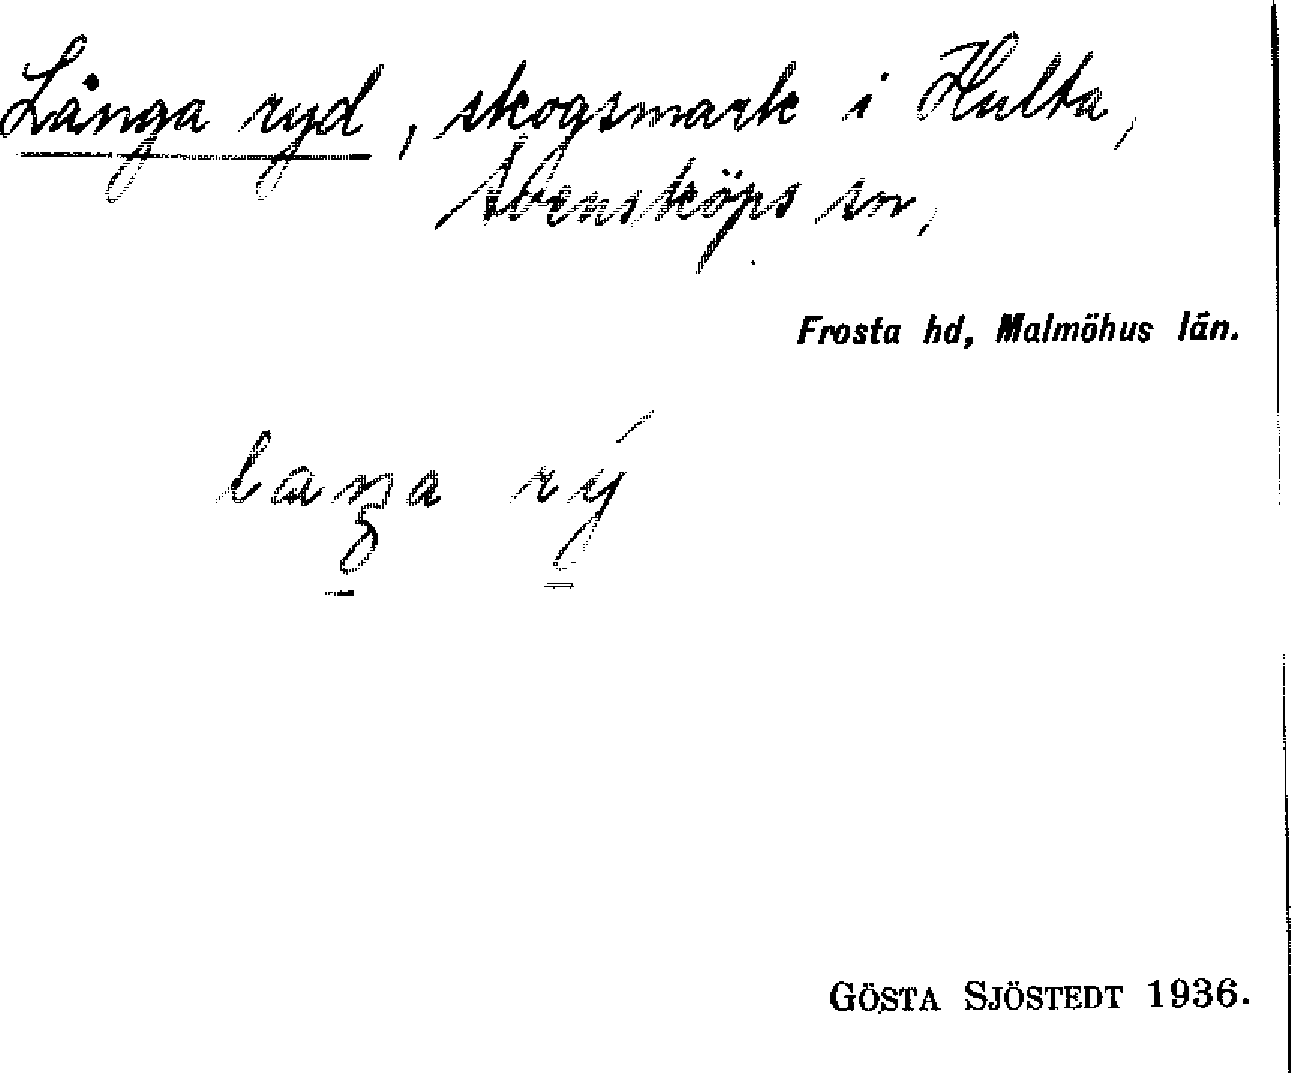 Långa ryd, skogsmark i Hulta,
Svensköps sn,
Frosta hd, Malmöhus län.
laŋa rý
GÖSTA SJÖSTEDT 1936.